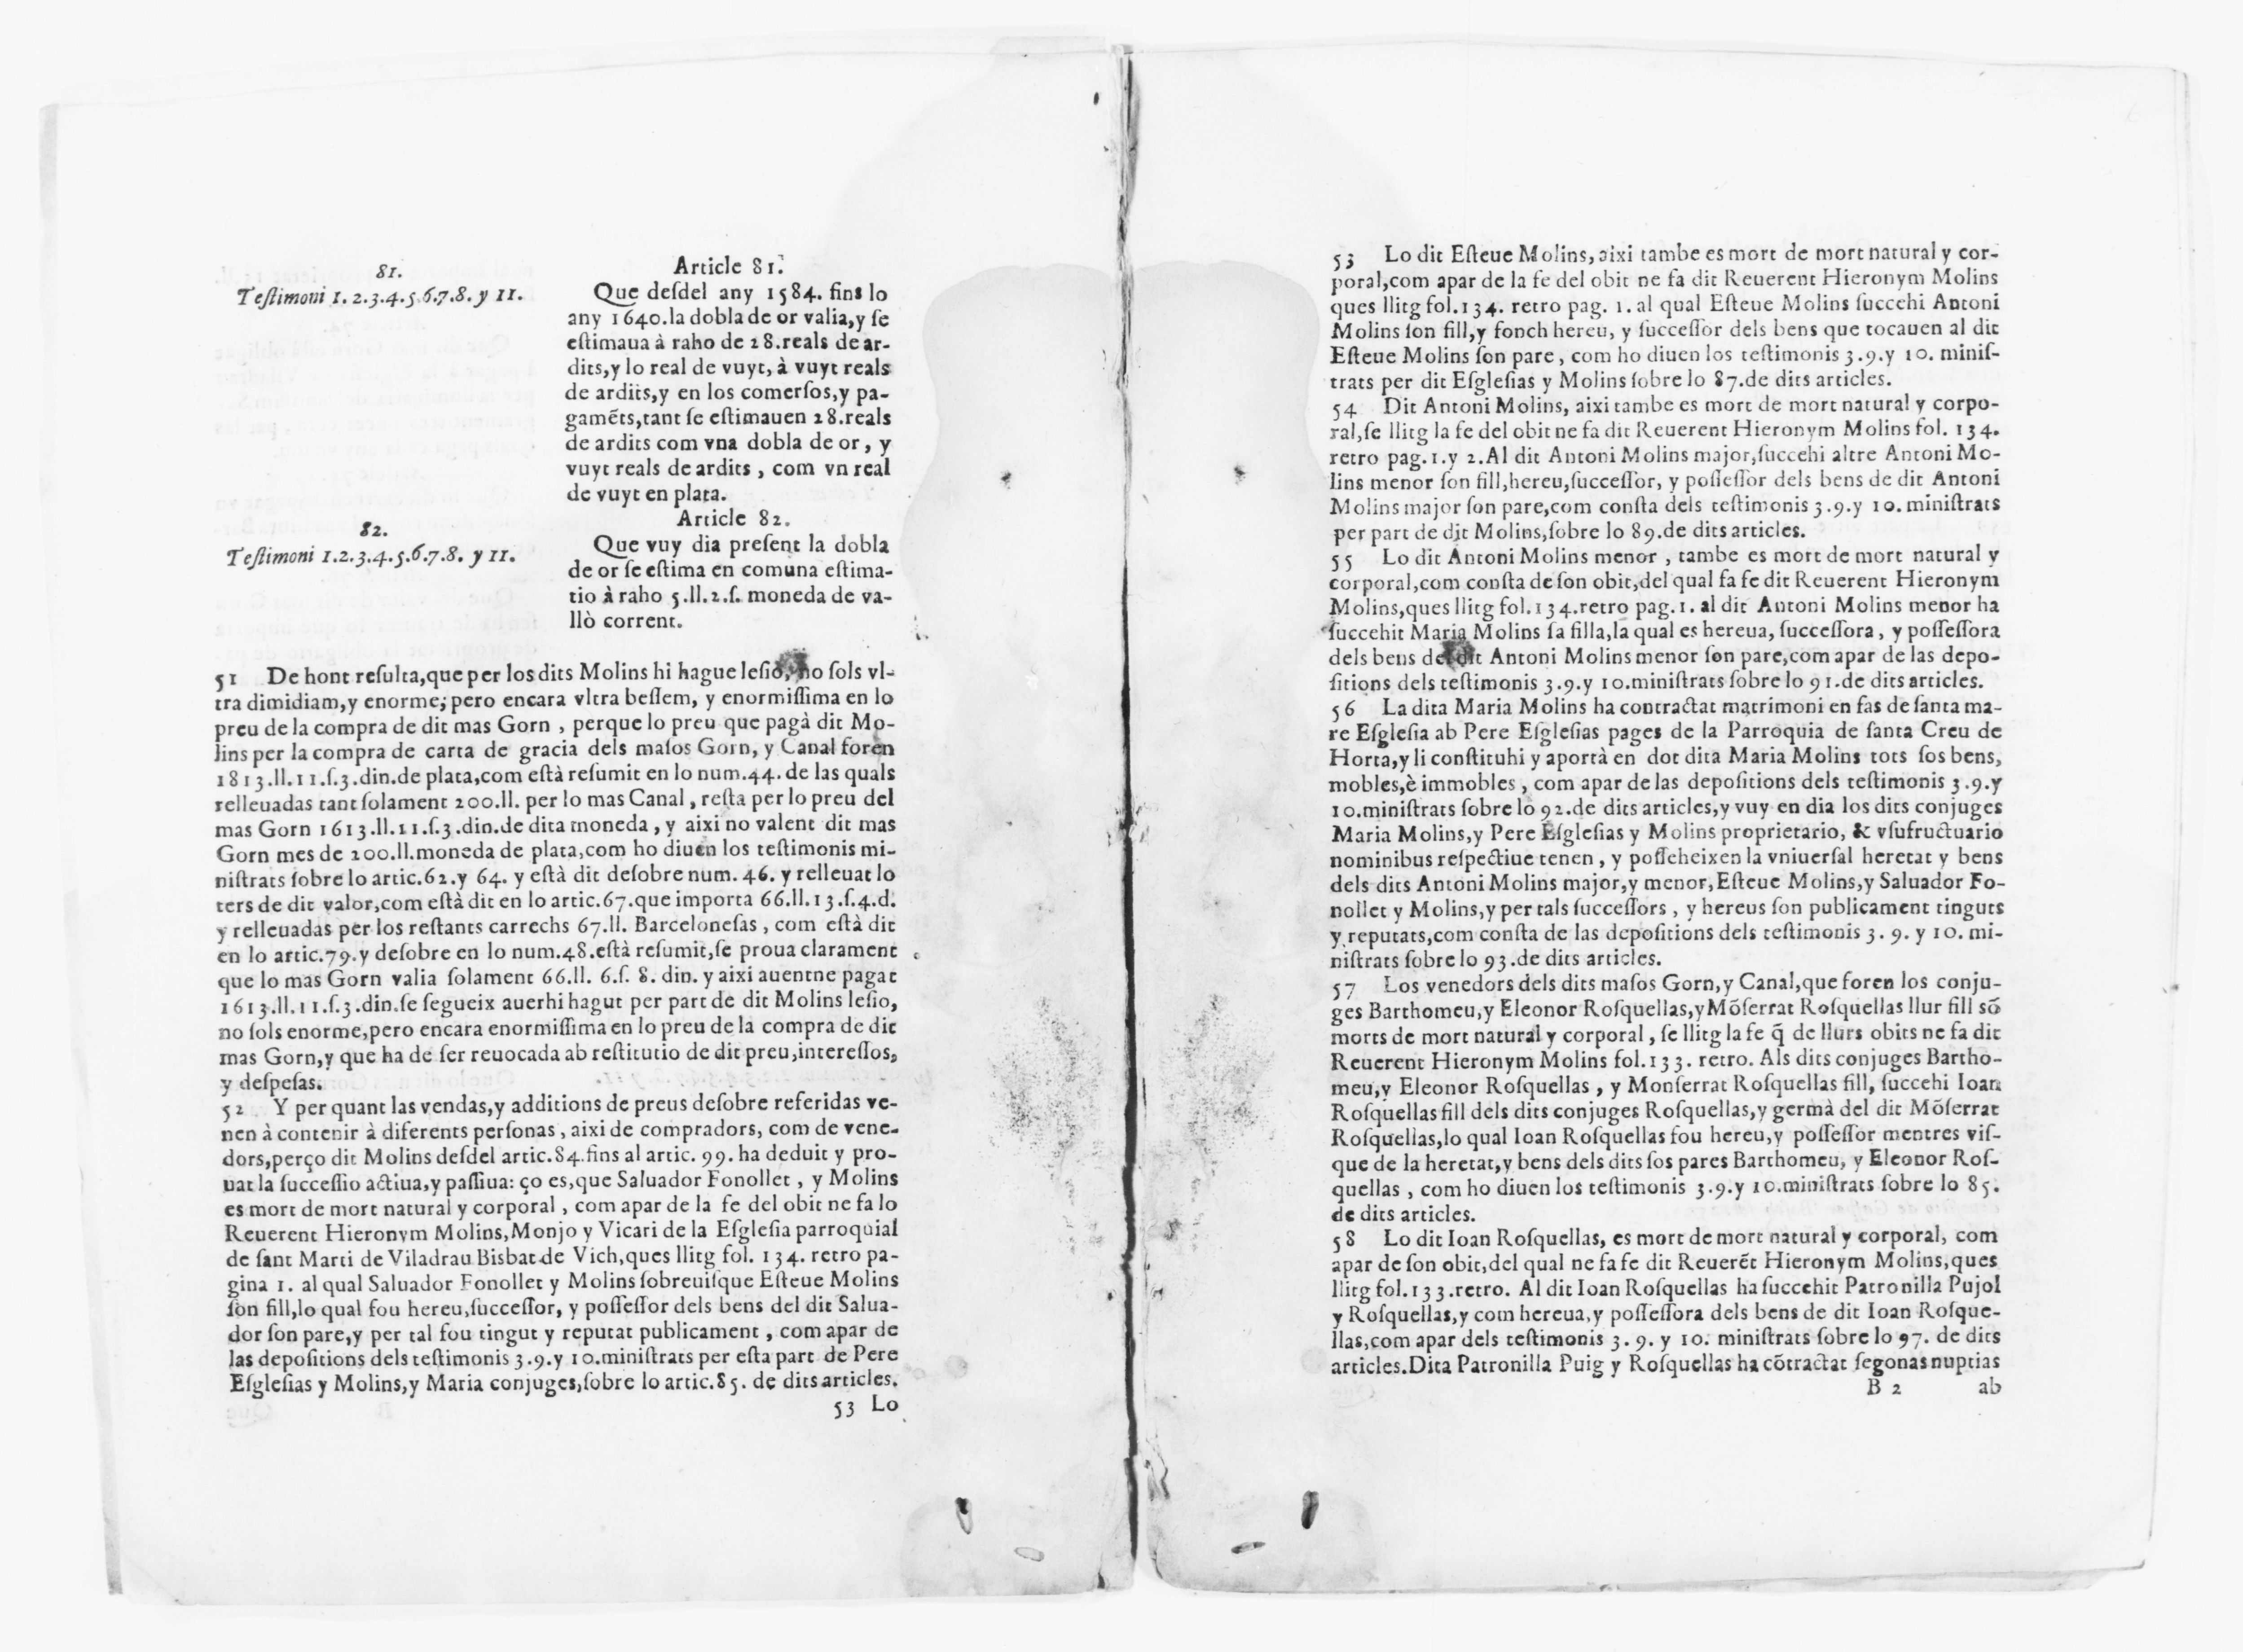 81.
Teſtimoni 1.2.3.4.5.6.7.8. y 11.
Article 81.
Que deſdel any 1584. fins lo
any 1640.la dobla de or valia,y ſe
eſtimaua à raho de 28.reals de ar-
dits,y lo real de vuyt, à vuyt reals
de ardits,y en los comerſos,y pa-
gamẽts,tant ſe eſtimauen 28.reals
de ardits com vna dobla de or, y
vuyt reals de ardits, com vn real
de vuyt en plata.
82.
Teſtimoni 1.2.3.4.5.6.7.8. y 11.
Article 82.
Que vuy dia preſent la dobla
de or ſe eſtima en comuna eſtima-
tio à raho 5.ll.2.ſ. moneda de va-
llò corrent.
51 De hont reſulta,que per los dits Molins hi hague leſio, no ſols vl-
tra dimidiam,y enorme; pero encara vltra beſſem, y enormiſſima en lo
preu de la compra de dit mas Gorn, perque lo preu que pagà dit Mo-
lins per la compra de carta de gracia dels maſos Gorn, y Canal foren
1813.ll.11.ſ.3.din.de plata,com eſtà reſumit en lo num.44. de las quals
relleuadas tant ſolament 200.ll. per lo mas Canal, reſta per lo preu del
mas Gorn 1613.ll.11.ſ.3.din.de dita moneda, y aixi no valent dit mas
Gorn mes de 200.ll.moneda de plata,com ho diuen los teſtimonis mi-
niſtrats ſobre lo artic.62.y 64. y eſtà dit deſobre num. 46. y relleuat lo
ters de dit valor,com eſtà dit en lo artic.67.que importa 66.ll.13.ſ.4.d.
y relleuadas per los reſtants carrechs 67.ll. Barceloneſas, com eſtà dit
en lo artic.79.y deſobre en lo num.48.eſtà reſumit,ſe proua clarament
que lo mas Gorn valia ſolament 66.ll. 6.ſ. 8. din. y aixi auentne pagat
1613.ll.11.ſ.3.din.ſe ſegueix auerhi hagut per part de dit Molins leſio,
no ſols enorme,pero encara enormiſſima en lo preu de la compra de dit
mas Gorn,y que ha de ſer reuocada ab reſtitutio de dit preu,intereſſos,
y deſpeſas.
52 Y per quant las vendas,y additions de preus deſobre referidas ve-
nen à contenir à diferents perſonas, aixi de compradors, com de vene-
dors,perço dit Molins deſdel artic.84.fins al artic. 99. ha deduit y pro-
uat la ſucceſſio actiua,y paſſiua: ço es,que Saluador Fonollet, y Molins
es mort de mort natural y corporal, com apar de la fe del obit ne fa lo
Reuerent Hieronym Molins,Monjo y Vicari de la Eſgleſia parroquial
de ſant Marti de Viladrau Bisbat de Vich,ques llitg fol. 134. retro pa-
gina 1. al qual Saluador Fonollet y Molins ſobreuiſque Eſteue Molins
ſon fill,lo qual fou hereu,ſucceſſor, y poſſeſſor dels bens del dit Salua-
dor ſon pare,y per tal fou tingut y reputat publicament, com apar de
las depoſitions dels teſtimonis 3.9.y 10.miniſtrats per eſta part de Pere
Eſgleſias y Molins,y Maria conjuges,ſobre lo artic.85. de dits articles.
53 Lo
53 Lo dit Eſteue Molins, aixi tambe es mort de mort natural y cor-
poral,com apar de la fe del obit ne fa dit Reuerent Hieronym Molins
ques llitg fol.134. retro pag. 1. al qual Eſteue Molins ſuccehi Antoni
Molins ſon fill,y fonch hereu, y ſucceſſor dels bens que tocauen al dit
Eſteue Molins ſon pare, com ho diuen los teſtimonis 3.9.y 10. miniſ-
trats per dit Eſgleſias y Molins ſobre lo 87.de dits articles.
54 Dit Antoni Molins, aixi tambe es mort de mort natural y corpo-
ral,ſe llitg la fe del obit ne fa dit Reuerent Hieronym Molins fol. 134.
retro pag.1.y 2.Al dit Antoni Molins major,ſuccehi altre Antoni Mo-
lins menor ſon fill,hereu,ſucceſſor, y poſſeſſor dels bens de dit Antoni
Molins major ſon pare,com conſta dels teſtimonis 3.9.y 10. miniſtrats
per part de dit Molins,ſobre lo 89.de dits articles.
55 Lo dit Antoni Molins menor, tambe es mort de mort natural y
corporal,com conſta de ſon obit,del qual fa fe dit Reuerent Hieronym
Molins,ques llitg fol.134.retro pag.1. al dit Antoni Molins menor ha
ſuccehit Maria Molins ſa filla,la qual es hereua, ſucceſſora, y poſſeſſora
dels bens del dit Antoni Molins menor ſon pare,com apar de las depo-
ſitions dels teſtimonis 3.9.y 10.miniſtrats ſobre lo 91.de dits articles.
56 La dita Maria Molins ha contractat matrimoni en fas de ſanta ma-
re Eſgleſia ab Pere Eſgleſias pages de la Parroquia de ſanta Creu de
Horta,y li conſtituhi y aportà en dot dita Maria Molins tots ſos bens,
mobles,è immobles, com apar de las depoſitions dels teſtimonis 3.9.y
10.miniſtrats ſobre lo 92.de dits articles,y vuy en dia los dits conjuges
Maria Molins,y Pere Eſgleſias y Molins proprietario, & vſufructuario
nominibus reſpectiue tenen, y poſſeheixen la vniuerſal heretat y bens
dels dits Antoni Molins major,y menor,Eſteue Molins,y Saluador Fo-
nollet y Molins,y per tals ſucceſſors, y hereus ſon publicament tinguts
y reputats,com conſta de las depoſitions dels teſtimonis 3. 9. y 10. mi-
niſtrats ſobre lo 93.de dits articles.
57 Los venedors dels dits maſos Gorn,y Canal,que foren los conju-
ges Barthomeu,y Eleonor Roſquellas,y Mõſerrat Roſquellas llur fill sõ
morts de mort natural y corporal, ſe llitg la fe q̃ de llurs obits ne fa dit
Reuerent Hieronym Molins fol.133. retro. Als dits conjuges Bartho-
meu,y Eleonor Roſquellas, y Monſerrat Roſquellas fill, ſuccehi Ioan
Roſquellas fill dels dits conjuges Roſquellas,y germà del dit Mõſerrat
Roſquellas,lo qual Ioan Roſquellas fou hereu,y poſſeſſor mentres viſ-
que de la heretat,y bens dels dits ſos pares Barthomeu, y Eleonor Roſ-
quellas, com ho diuen los teſtimonis 3.9.y 10.miniſtrats ſobre lo 85.
de dits articles.
58 Lo dit Ioan Roſquellas, es mort de mort natural y corporal, com
apar de ſon obit,del qual ne fa fe dit Reuerẽt Hieronym Molins,ques
llitg fol.133.retro. Al dit Ioan Roſquellas ha ſuccehit Patronilla Pujol
y Roſquellas,y com hereua,y poſſeſſora dels bens de dit Ioan Roſque-
llas,com apar dels teſtimonis 3. 9. y 10. miniſtrats ſobre lo 97. de dits
articles.Dita Patronilla Puig y Roſquellas ha cõtractat ſegonas nuptias
B 2 ab